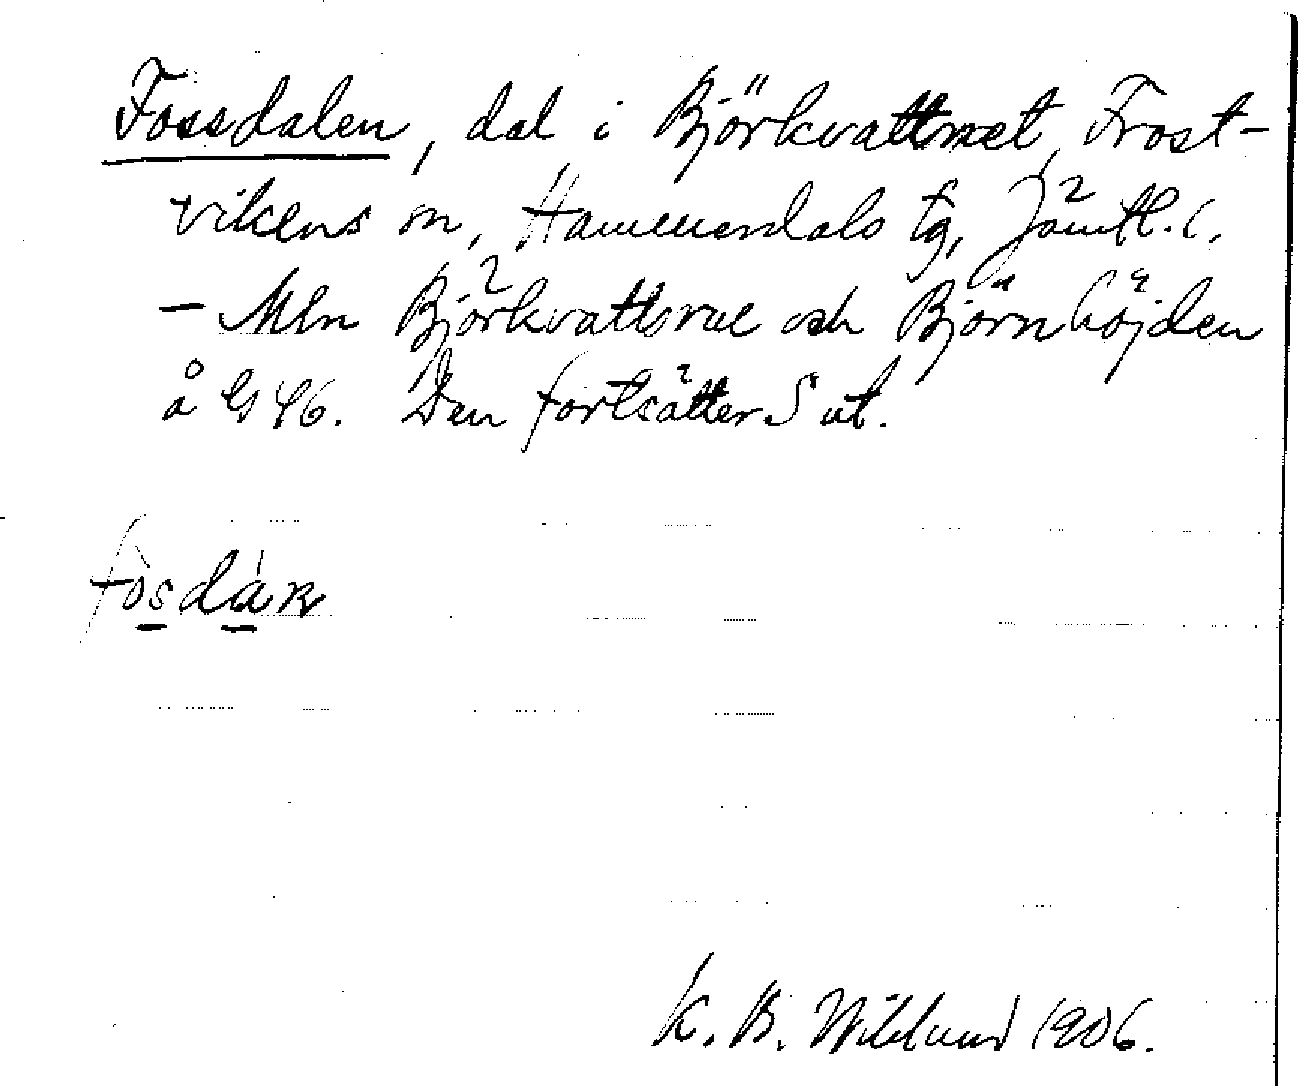 Fossdalen, dal i Björkvattnet, Frost-
vikens sn, Hammerdals tg, Jämtl. l.
– Mln Björkvattnet och Björnhöjden
å G 46. Den fortsätter S ut.
fòsdàn
K. B. Wiklund 1906.